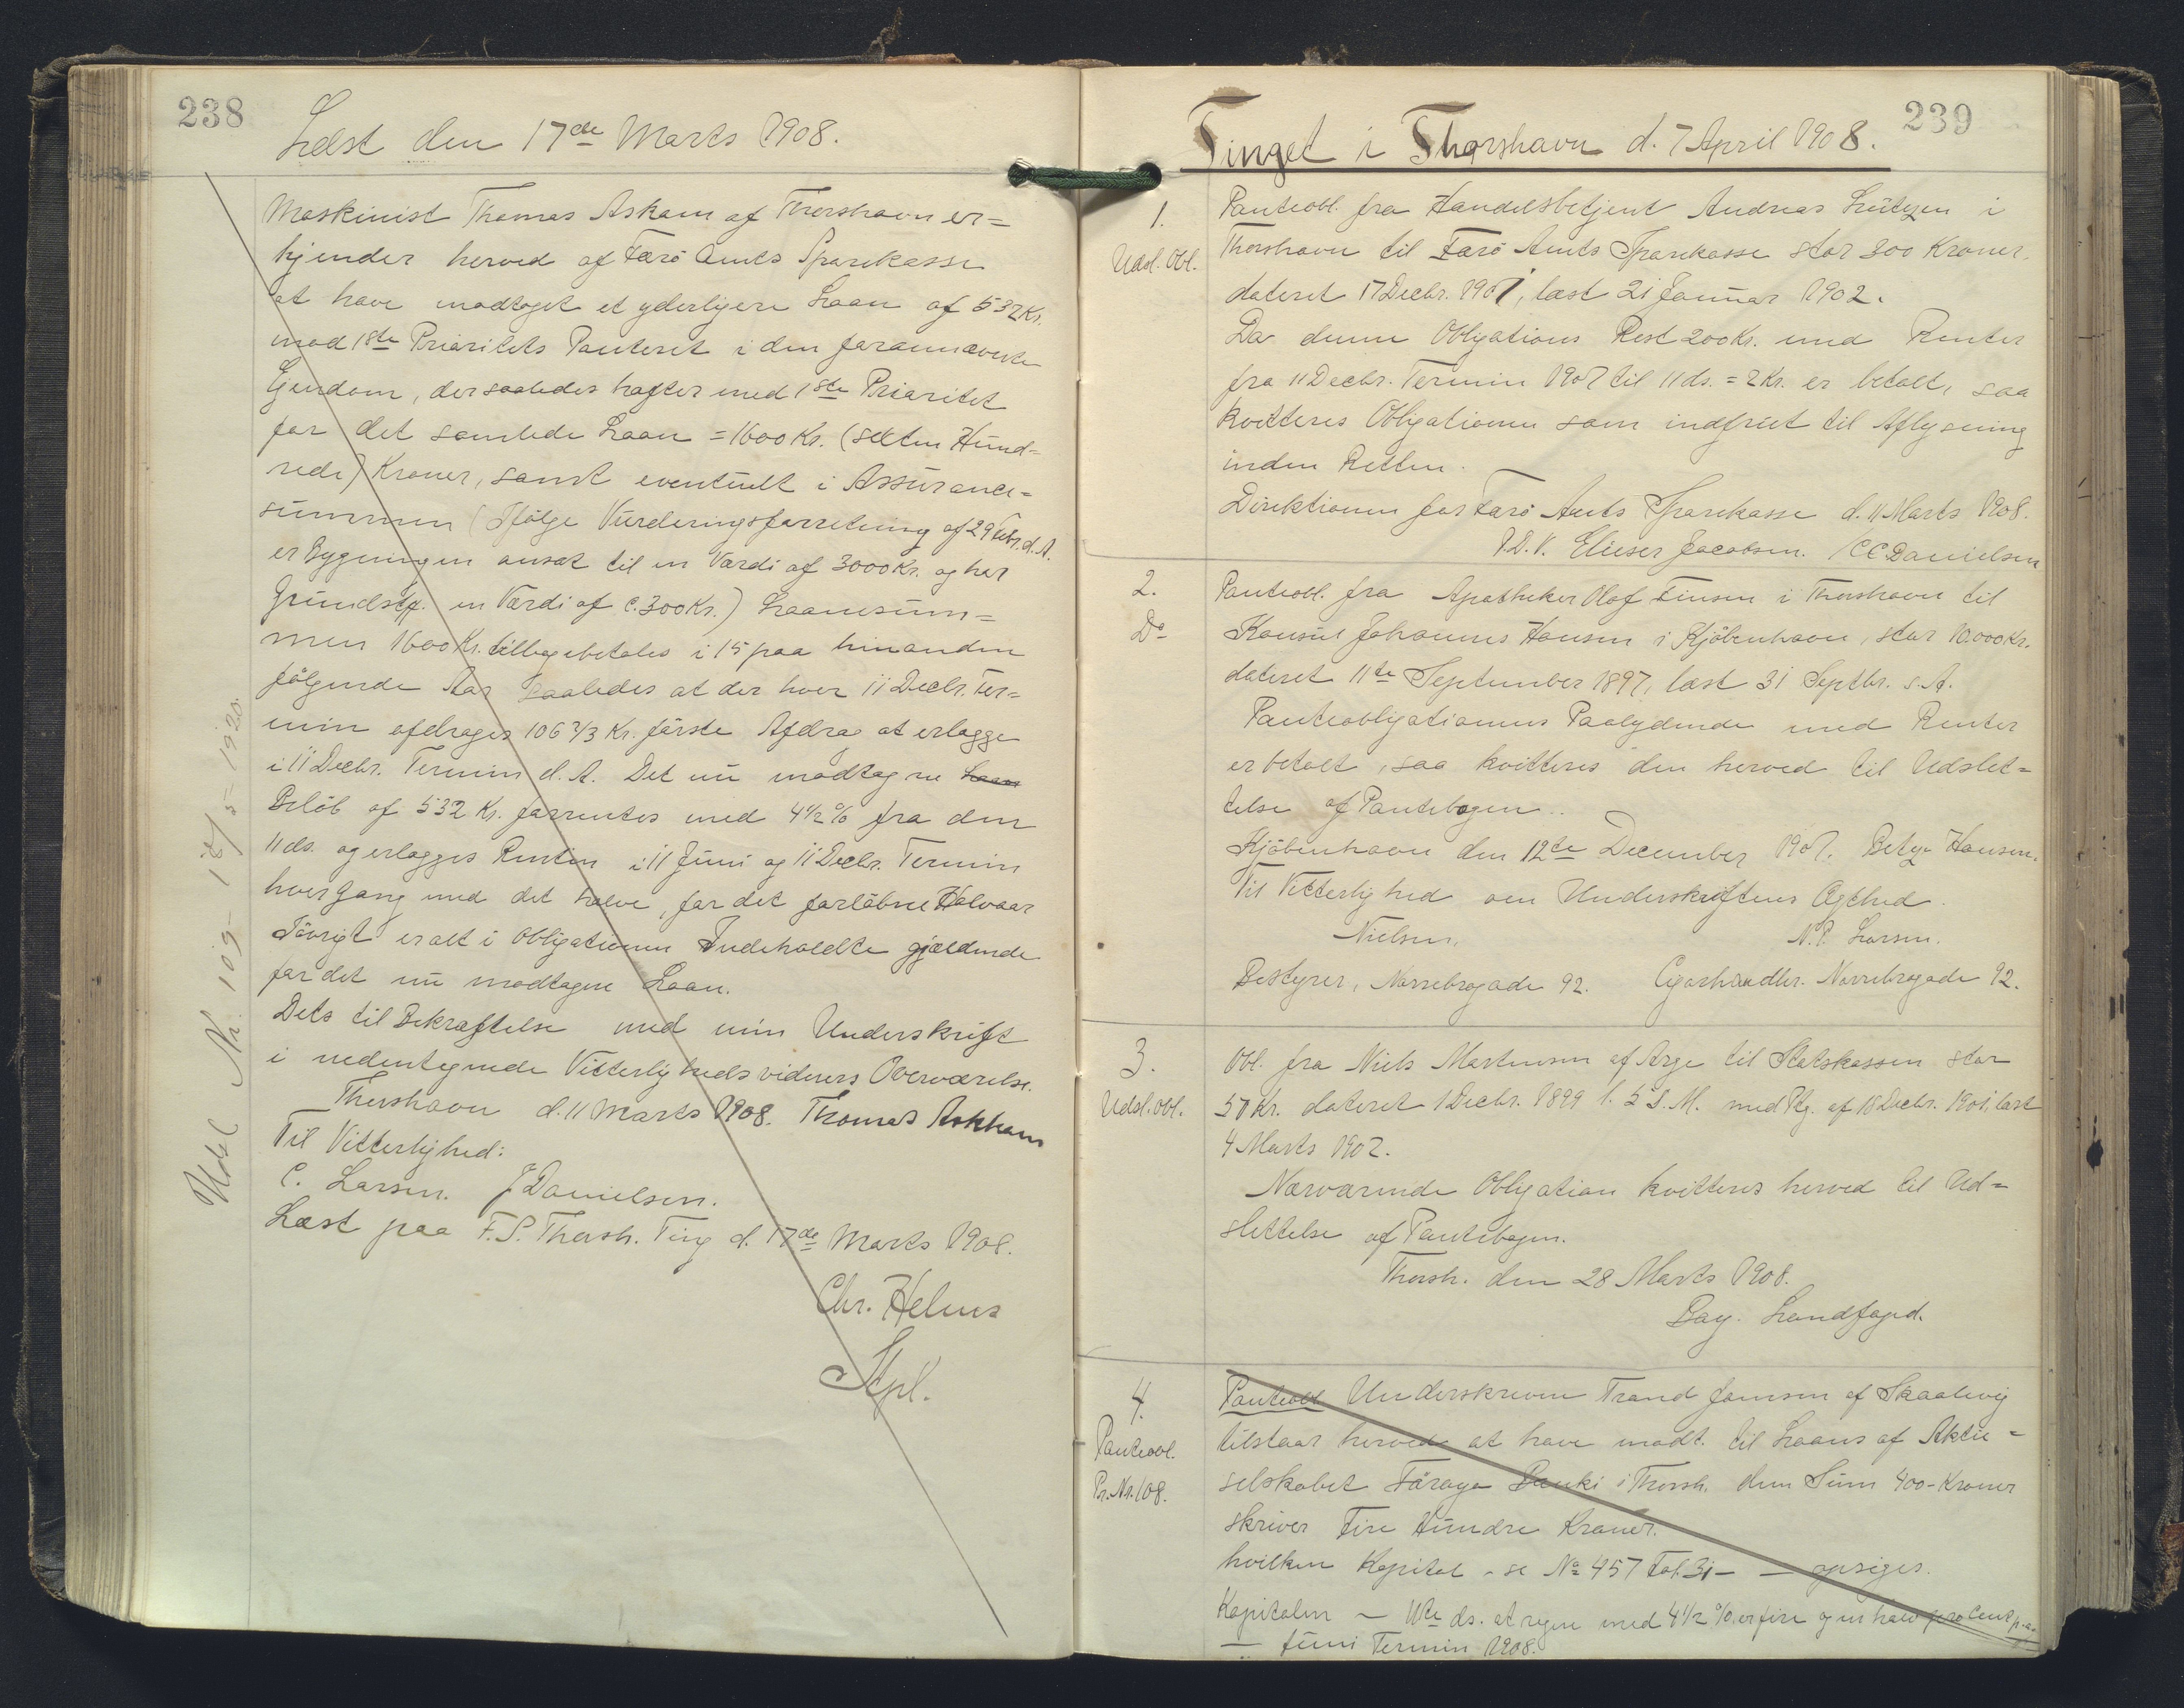 238
Læst den 17de Marts 1908.
Maskinist Thomas Askam af Thorshavn er=
kjender herved af Færö Amts Sparekasse
at have modtaget et yderligere Laan af 532 Kr.
mod 1ste Prioritets Panteret i den forannævnte
Ejendom, der saaledes hæfter med 1ste Prioritet
for det samlede Laan = 1600 Kr. (sexten Hund=
rede) Kroner, samt eventuelt i Assurance=
summen (Ifölge Vurderingsforretning af 29 Febr. d. A.
er Bygningen ansat til en Værdi af 3000 Kr. og har
Grundst. en Værdi af c. 300 Kr.) Laanesum=
men 1600 Kr. tilbagebetales i 15 paa hinanden
fölgende Aar saaledes at der hver 11 Decbr. Ter=
min afdrages 106 2/3 Kr. förste Afdrag at erlægge
i 11 Decbr. Termin d. A. Det nu modtagne Laan
Belöb af 532 Kr. forrentes med 4 1/2 % fra den
11 ds. og erlægges Renten i 11 Juni og 11 Decbr. Termin
hver Gang med det halve, for det forlöbne Halvaar
Iövrigt er alt i Obligationen Indeholdte gjældende
for det nu modtagne Laan.
Dets til Bekræftelse med min Underskrift
i nedentegnede Vitterlighedsvidners Overværelse.
Thorshavn d. 11 Marts 1908. Thomas Askham
Til Vitterlighed:
C. Larsen. J Danielsen.
Læst paa F. S. Thorsh. Ting d. 17de Marts 1908.
Chr. Helms
Udsl Nr. 109 - 18/5 - 1920.
239
Tinget i Thorshavn d. 7 April 1908.
1.
Udsl. Obl.
Panteobl. fra Handelsbetjent Andreas Lützen i
Thorshavn til Færö Amts Sparekasse stor 300 Kroner,
dateret 17 Decbr. 1901, læst 21 Januar 1902.
Da denne Obligations Rest 200 Kr. med Renter
fra 11 Decbr. Termin 1907 til 11 ds. = 2 Kr. er betalt, saa
kvitteres Obligationen som indfriet til Aflysning
inden Retten.
Direktionen for Færö Amts Sparekasse d. 11 Marts 1908.
P.D.V. Elieser Jacobsen. / C C Danielsen
2.
Do
Panteobl. fra Apotheker Olaf Finsen i Thorshavn til
Konsul Johannes Hansen i Kjöbenhavn, stor 10.000 Kr.
dateret 11te September 1897, læst 31 Septbr. s. A.
Panteobligationens Paalydende med Renter
er betalt, saa kvitteres den herved til Udslet=
telse af Pantebogen.
Kjöbenhavn den 12te December 1907. Betzy Hansen.
Til Vitterlighed om Underskriftens Ægthed.
Nielsen,
N. P. Larsen.
Bestyrer, Nörrebrogade 92. Cigarhandler. Nörrebrogade 92.
3.
Udsl. obl.
Obl. fra Niels Martinsen af Arge til Statskassen stor
50 Kr. dateret 1 Decbr. 1899 l. 5 s. M. med Ptg. af 18 Decbr. 1901, læst
4 Marts 1902.
Nærværende Obligation kvitteres herved til Ud=
slettelse af Pantebogen.
Thorsh. den 28 Marts 1908.
Bay. Landfoged.
4.
Panteobl.
Pr. Nr. 108.
Panteobl Underskrevne Trand Jansen af Skaalevig
tilstaar herved at have modt. til Laans af Aktie=
selskabet Föroya Banki i Thorsh. den Sum 400 - Kroner
skriver Fire Hundre Kroner.
hvilken Kapital - se No 457 Fol. 31 — — opsiges.
Kapitalen — 11te ds. at regne med 4 1/2 %. er fire og en halv procent p.a.
— Juni Termin 1908.